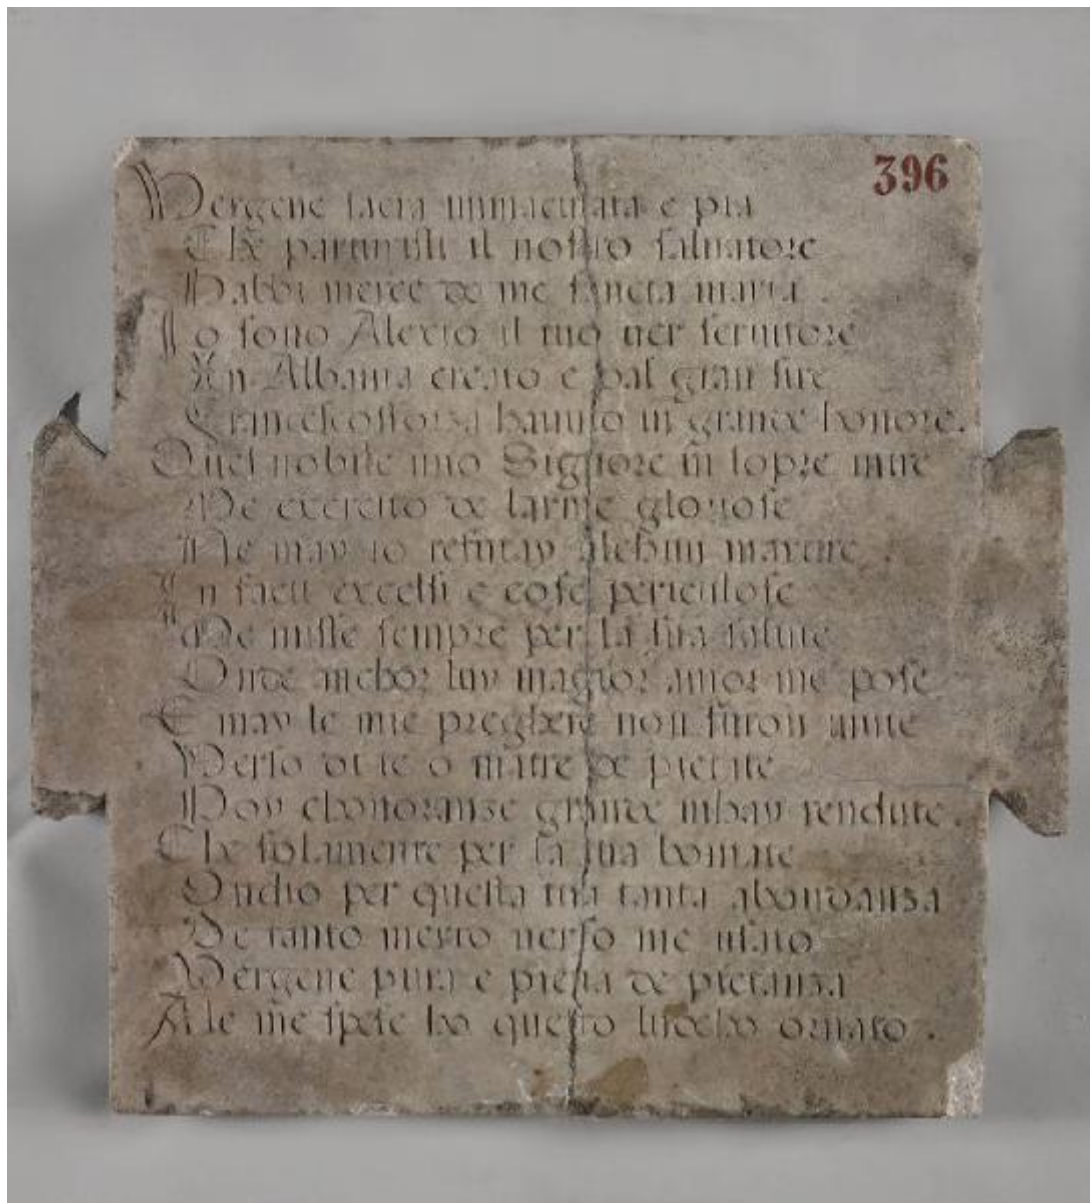 396
Vergene sacra immaculata e pia
Che parturisti il nostro salvatore
Habbi merce de me sancta maria .
Io sono Alexio il tuo ver servitore
In Albania creato e dal gran sire
Francescosforza havuto in grande honore.
Quel nobile mio Signore in lopre mire
De exercito de larme gloriose
Ne may io refutay alchun martire .
In facti excelsi e cose periculose
Me misse sempre per la sua salute
Onde anchor luy magior amor me pose
E may le mie preghiere non furon
Verso di te o matre de pietate
Doy chonoranze grande mhay rendute .
Che solamente per la tua bontate
Ondio per questa tua tanta abondanza
De tanto merto verso me usato
Vergene pura e piena de pietanza
Ale mie spese ho questo luocho ornato .